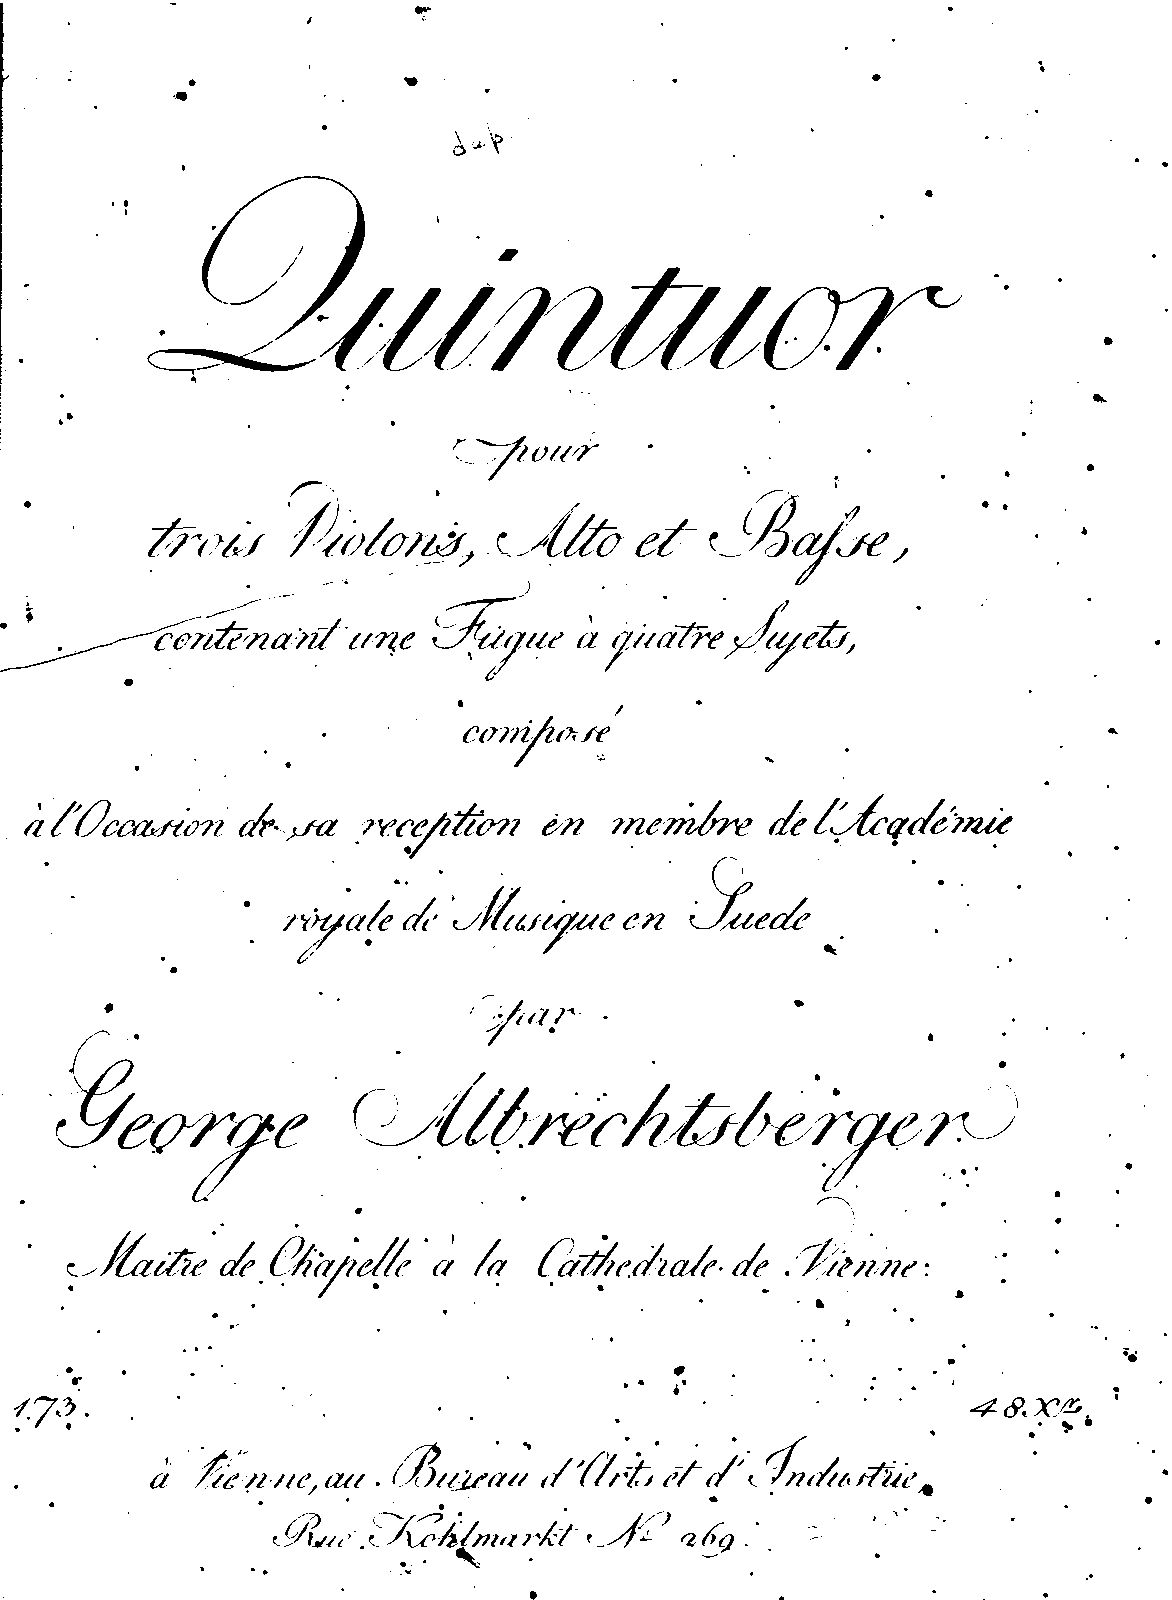 dup
Quintuor
pour
trois Violons, Alto et Basse,
contenant une Fugue à quatre Sujets,
composé
à l'Occasion de sa reception en membre de l'Académie
royale de Musique en Suede
par
George Albrechtsberger
Maitre de Chapelle à la Cathedrale de Vienne:
173. 48.Xr.
à Vienne, au Bureau d'Arts et d'Industrie,
Rue Kohlmarkt No 269.